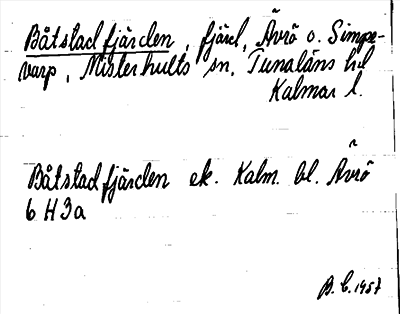 Båtstadfjärden, fjärd, Ävrö o. Simpe-
varp, Misterhults sn, Tunaläns hd
Kalmar l.
Båtstadfjärden ek. Kalm. bl. Ävrö
6 H 3a
B. C. 1957